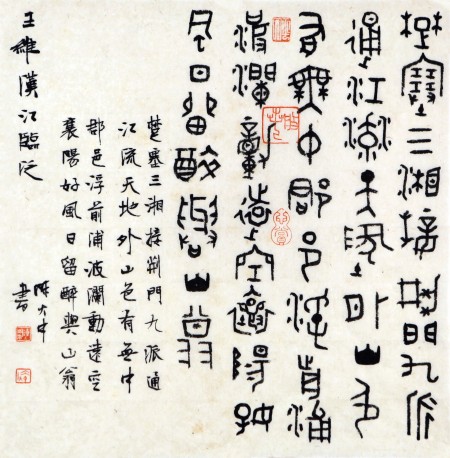 楚塞三湘接荆門九派
通江流天地外山色
有無中郡邑浮前浦
波瀾動遠空襄陽好
風日留醉與山翁
楚塞三湘接荆門九派通
江流天地外山色有無中
郡邑浮前浦波瀾動遠空
襄陽好風日留醉與山翁
王維漢江臨泛
陈大中
書